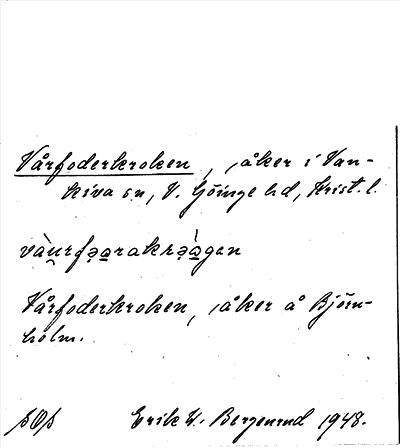 Vårfoderkroken, åker i Van-
kiva sn, V. Göinge hd, Krist. l.
vàu̯rfəa̯rakrə́a̯gen
Vårfoderkroken, åker å Björn-
holm.
SOS Erik W. Bergenrud 1948.